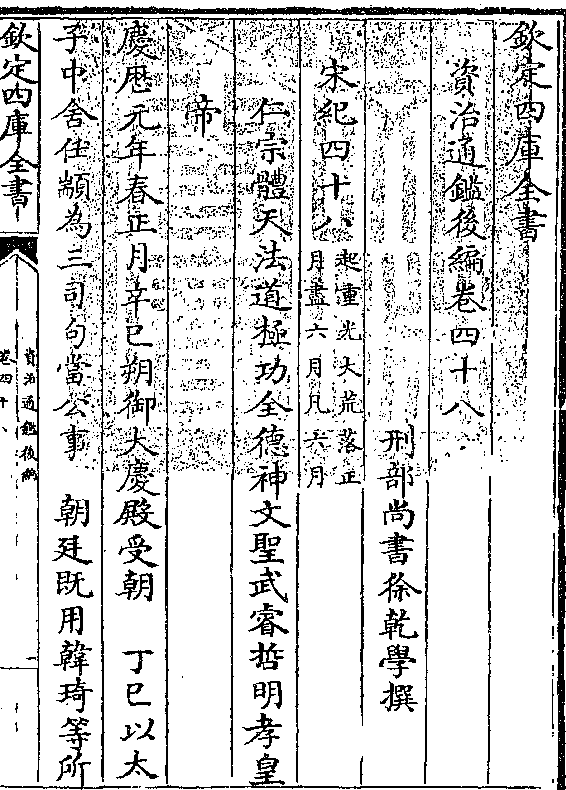 欽定四庫全書
資治通鑑後編卷四十八
刑部尚書徐乾學撰
宋紀四十八起重光大荒落正
月盡六月凡六月
仁宗體天法道極功全德神文聖武睿哲明孝皇
帝
慶歴元年春正月辛巳朔御大慶殿受朝　丁巳以太
子中舍任顓為三司句當公事　朝廷既用韓琦等所
欽定四庫全書
資治通鑑後編
卷四十八